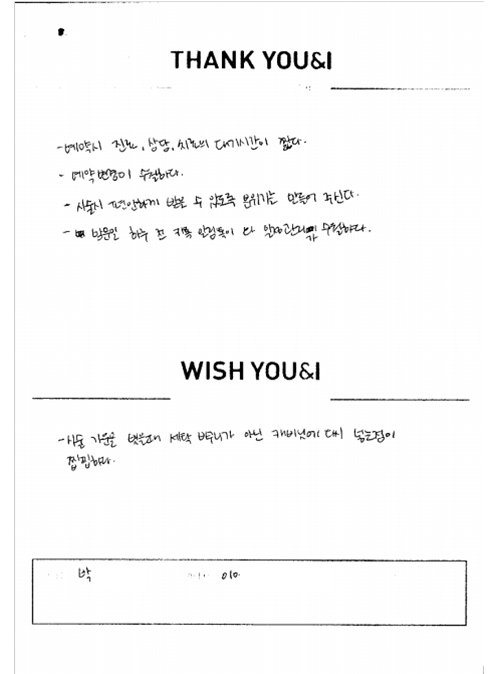 THANK YOU&I
- 예약시 진료, 상담, 치료의 대기시간이 짧다.
- 예약변경이 수월하다.
- 시술시 편안하게 받을 수 있도록 분위기를 만들어 주신다.
- 방문일 하루 전 카톡 알림톡이 와 일정관리가 수월하다.
WISH YOU&I
- 시술 가운을 벗을때 세탁 바구니가 아닌 캐비닛에 다시 넣는점이
찝찝하다.
박 010